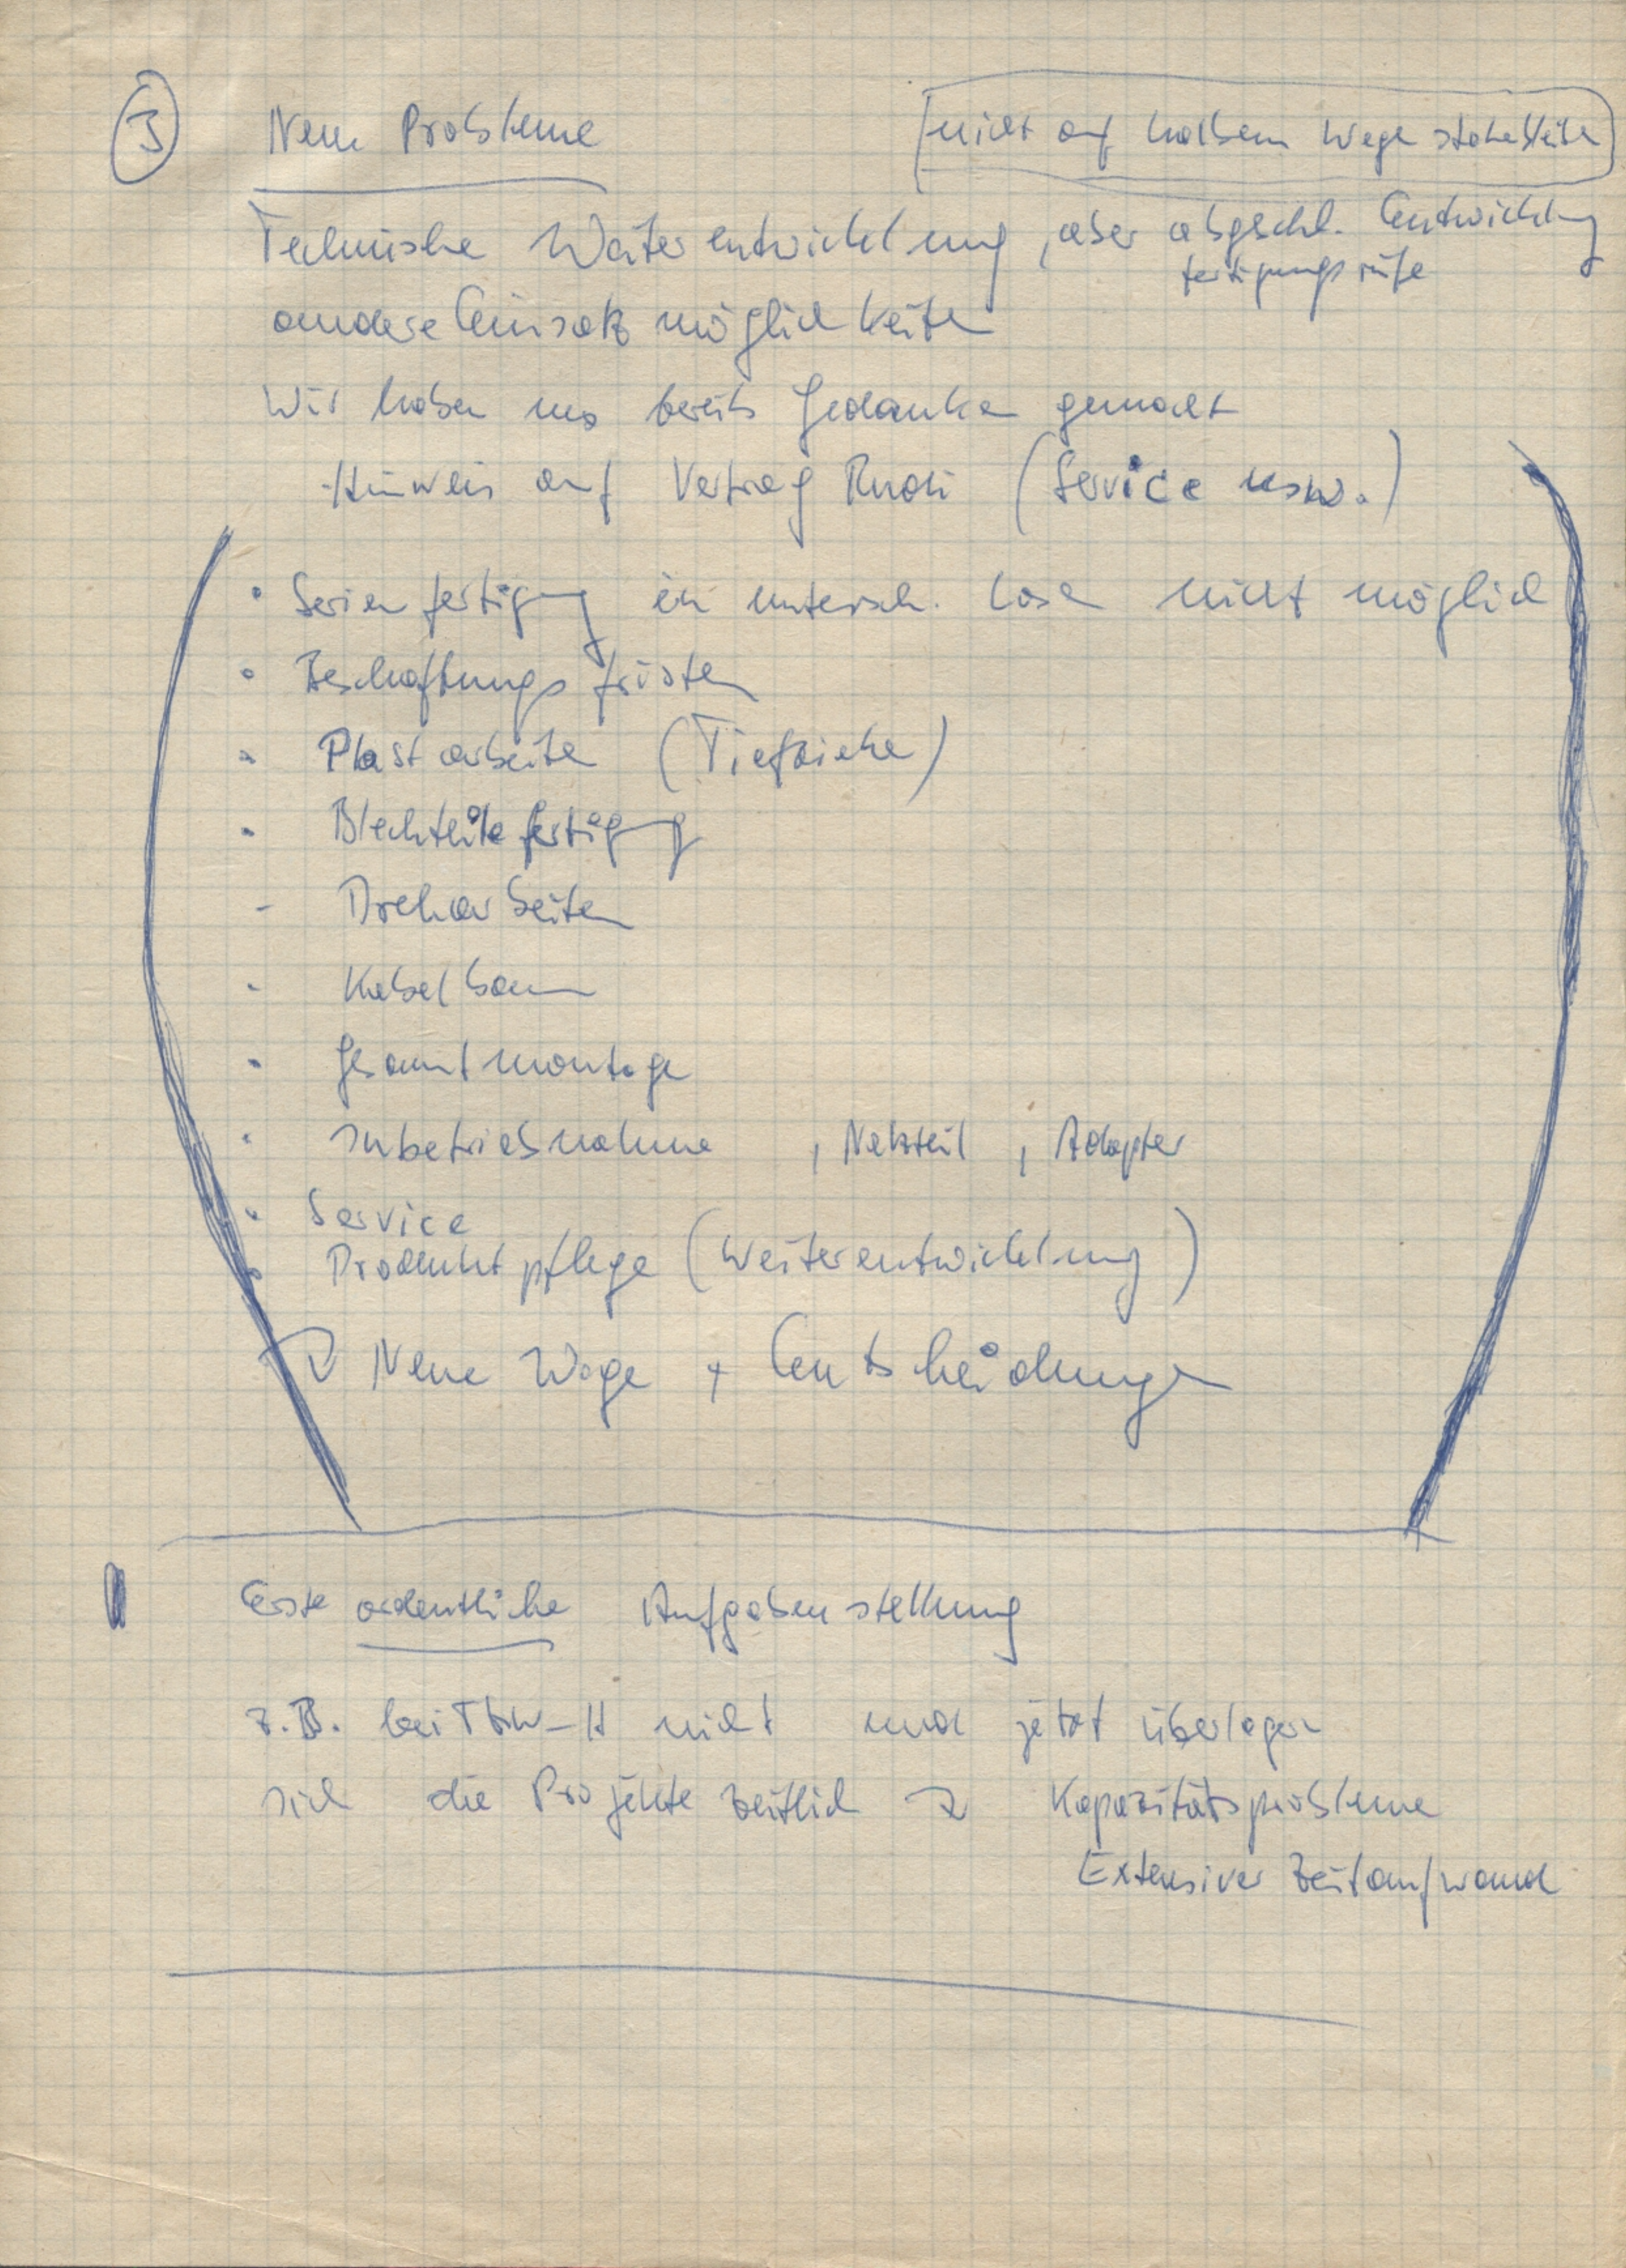 3 Neue Probleme
nicht auf halbem Wege stehebleiben
Technische Weiterentwicklung, aber abgeschl. Entwicklung
fertigungsreife
andere Einsatzmöglichkeiten
Wir haben uns bereits Gedanken gemacht
Hinweis auf Vertrag Rudi (Service usw.)
• Serienfertigung in untersch. Losen nicht möglich
• Beschaffungsfristen
- Plastarbeiten (Tiefziehen)
- Blechteilefertigung
- Dreharbeiten
- Kabelbaum
- Gesamtmontage
- Inbetriebnahme , Netzteil , Adapter
• Service
• Produktpflege (Weiterentwicklung)
Neue Wege + Entscheidungen
Erste ordentliche Aufgabenstellung
z.B. bei nicht und jetzt überlagern
sich die Projekte zeitlich → Kapazitätsprobleme
Extensiver Zeitaufwand